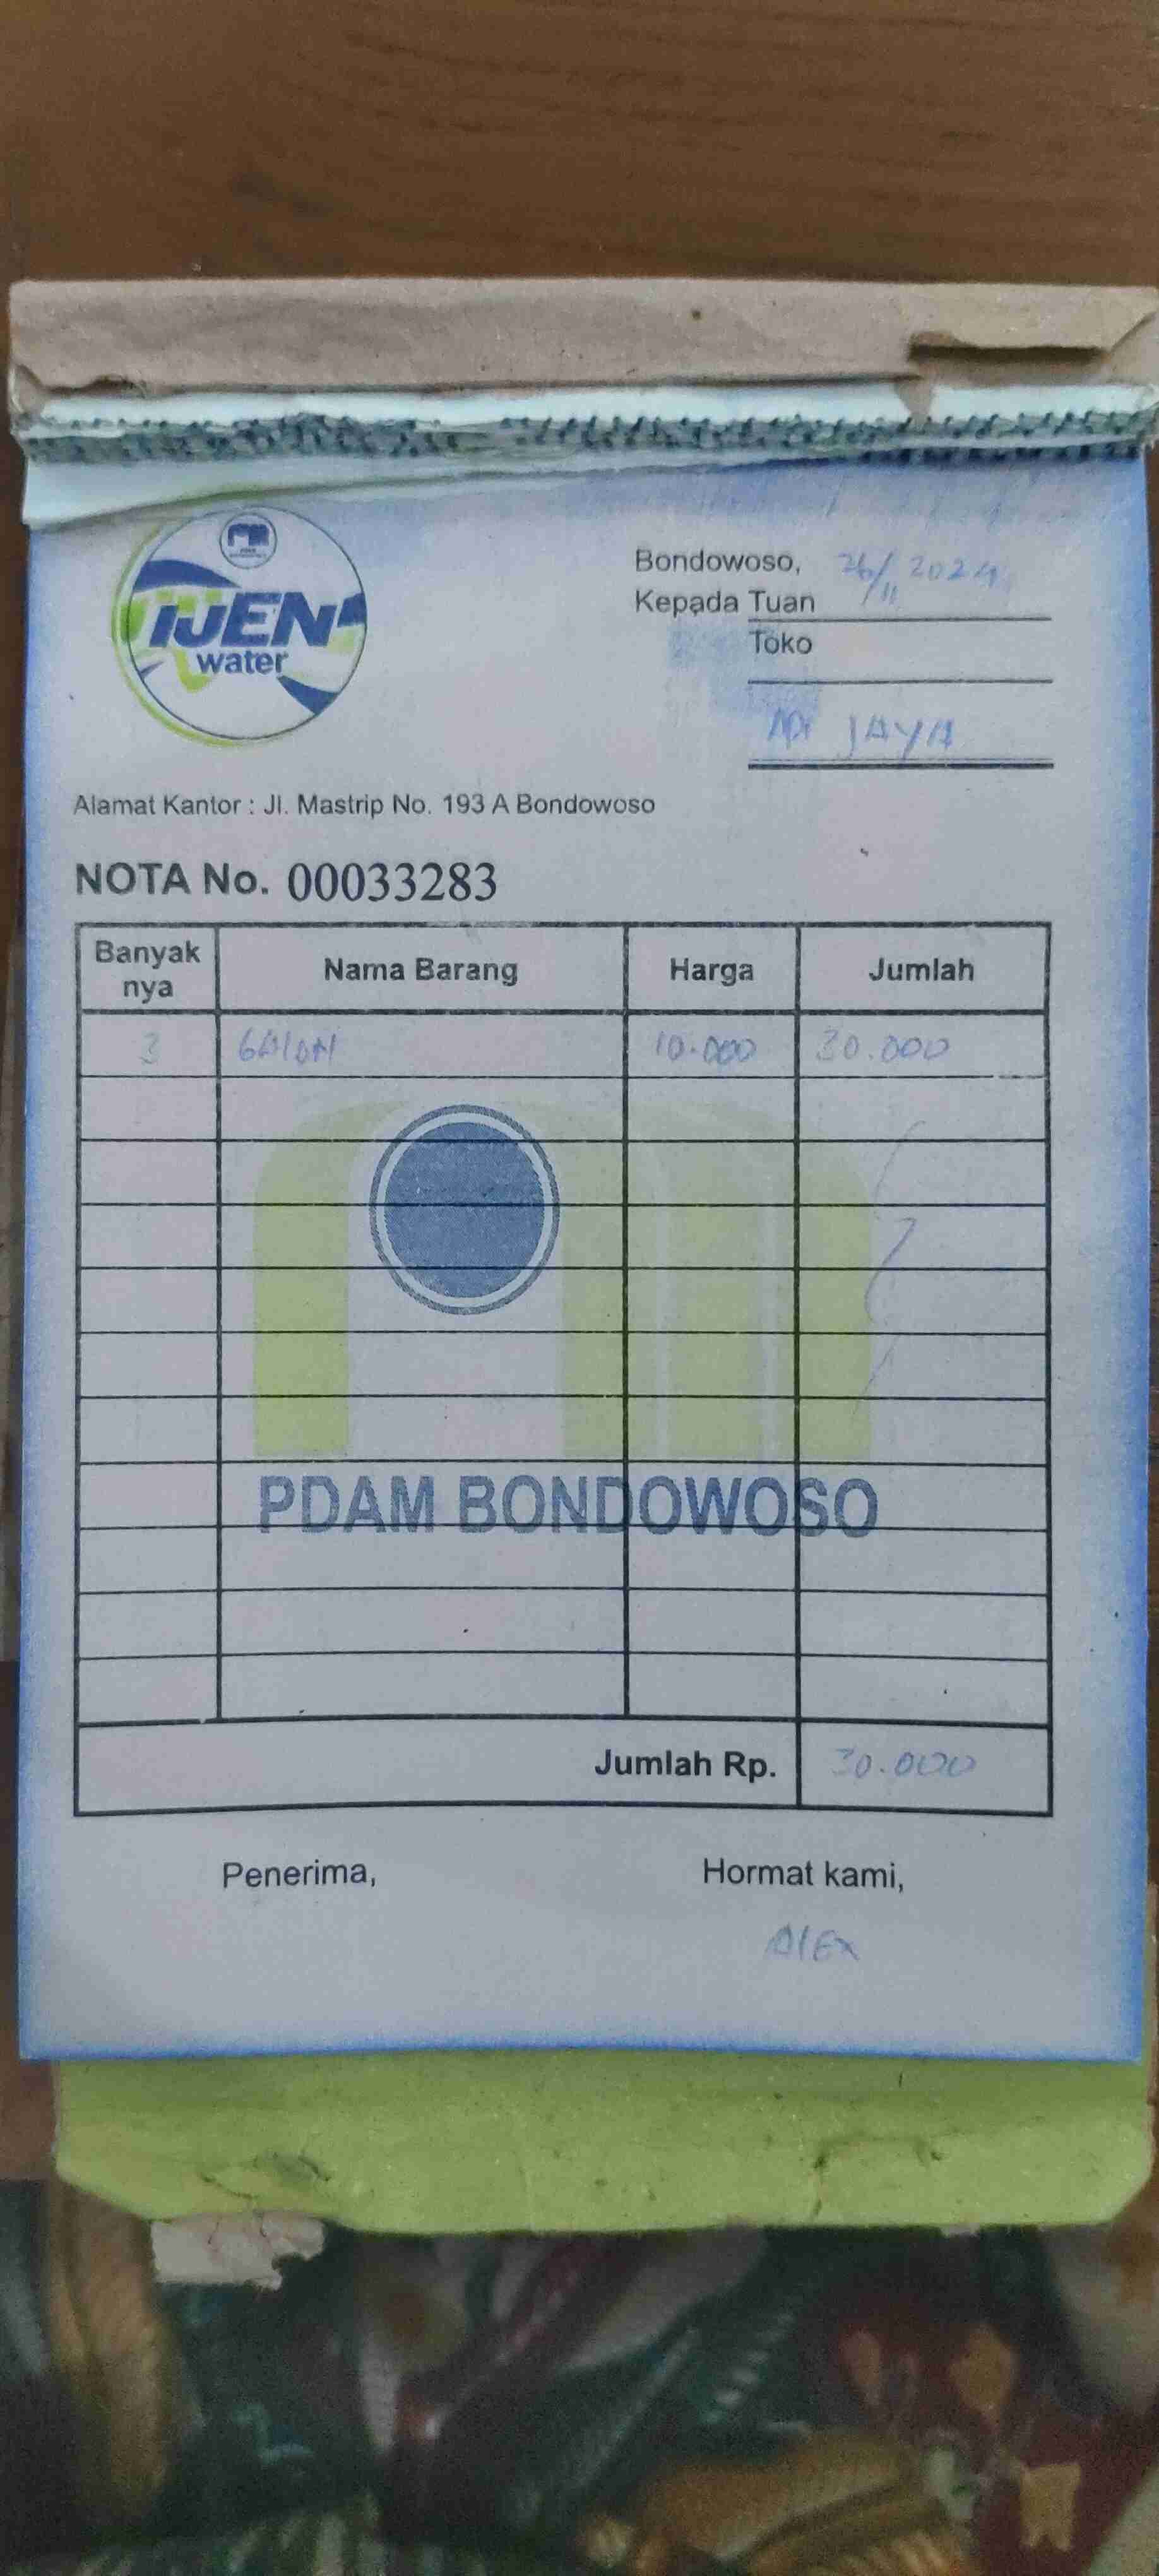 IJEN
water
Bondowoso, 26/11 2024
Kepada Tuan
Toko
JAYA
Alamat Kantor : Jl. Mastrip No. 193 A Bondowoso
NOTA No. 00033283
Banyak nya Nama Barang Harga Jumlah
3 GAlON 10.000 30.000
PDAM BONDOWOSO
Jumlah Rp. 30.000
Penerima, Hormat kami,
AlEx